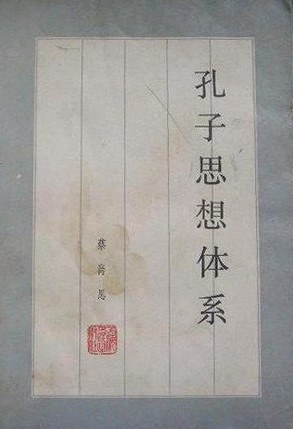 孔子思想体系
蔡尚思